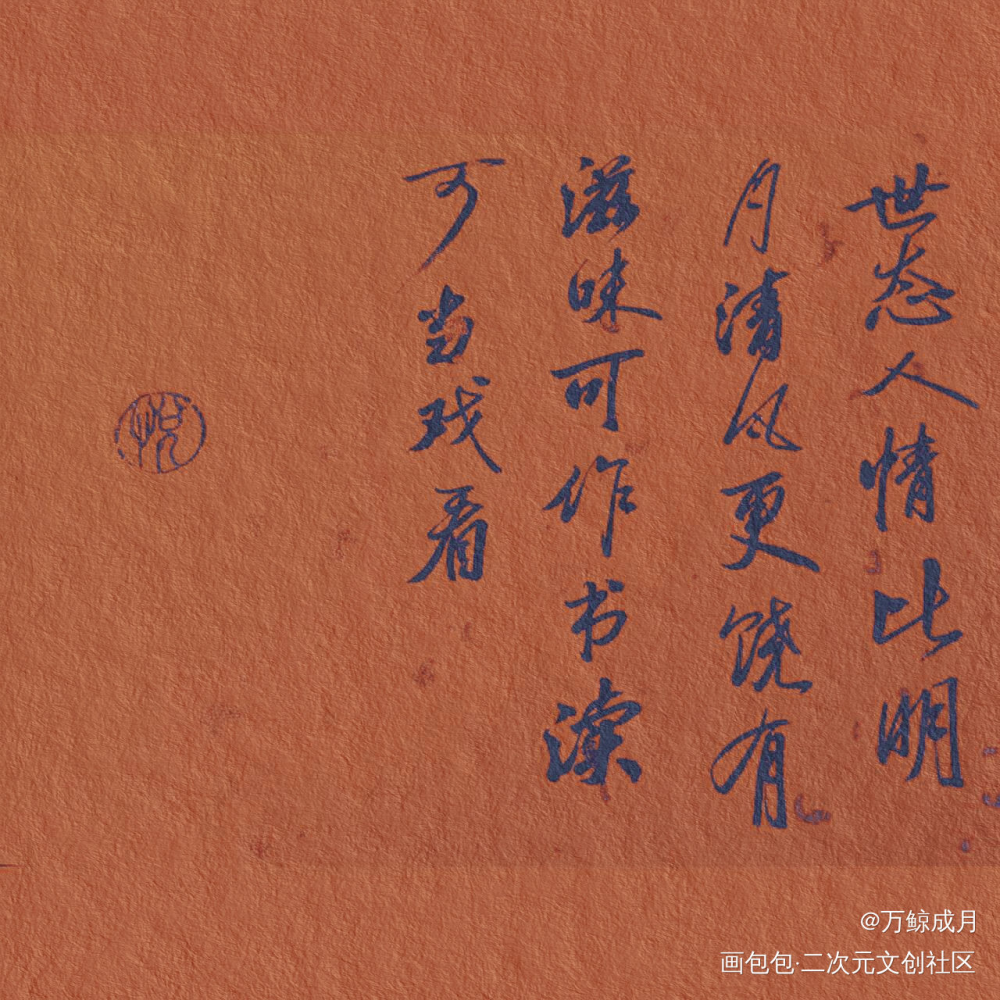 世态人情比明
月清风更饶有
滋味可作书渎
可当戏看
悦
@万鲸成月
画包包·二次元文创社区